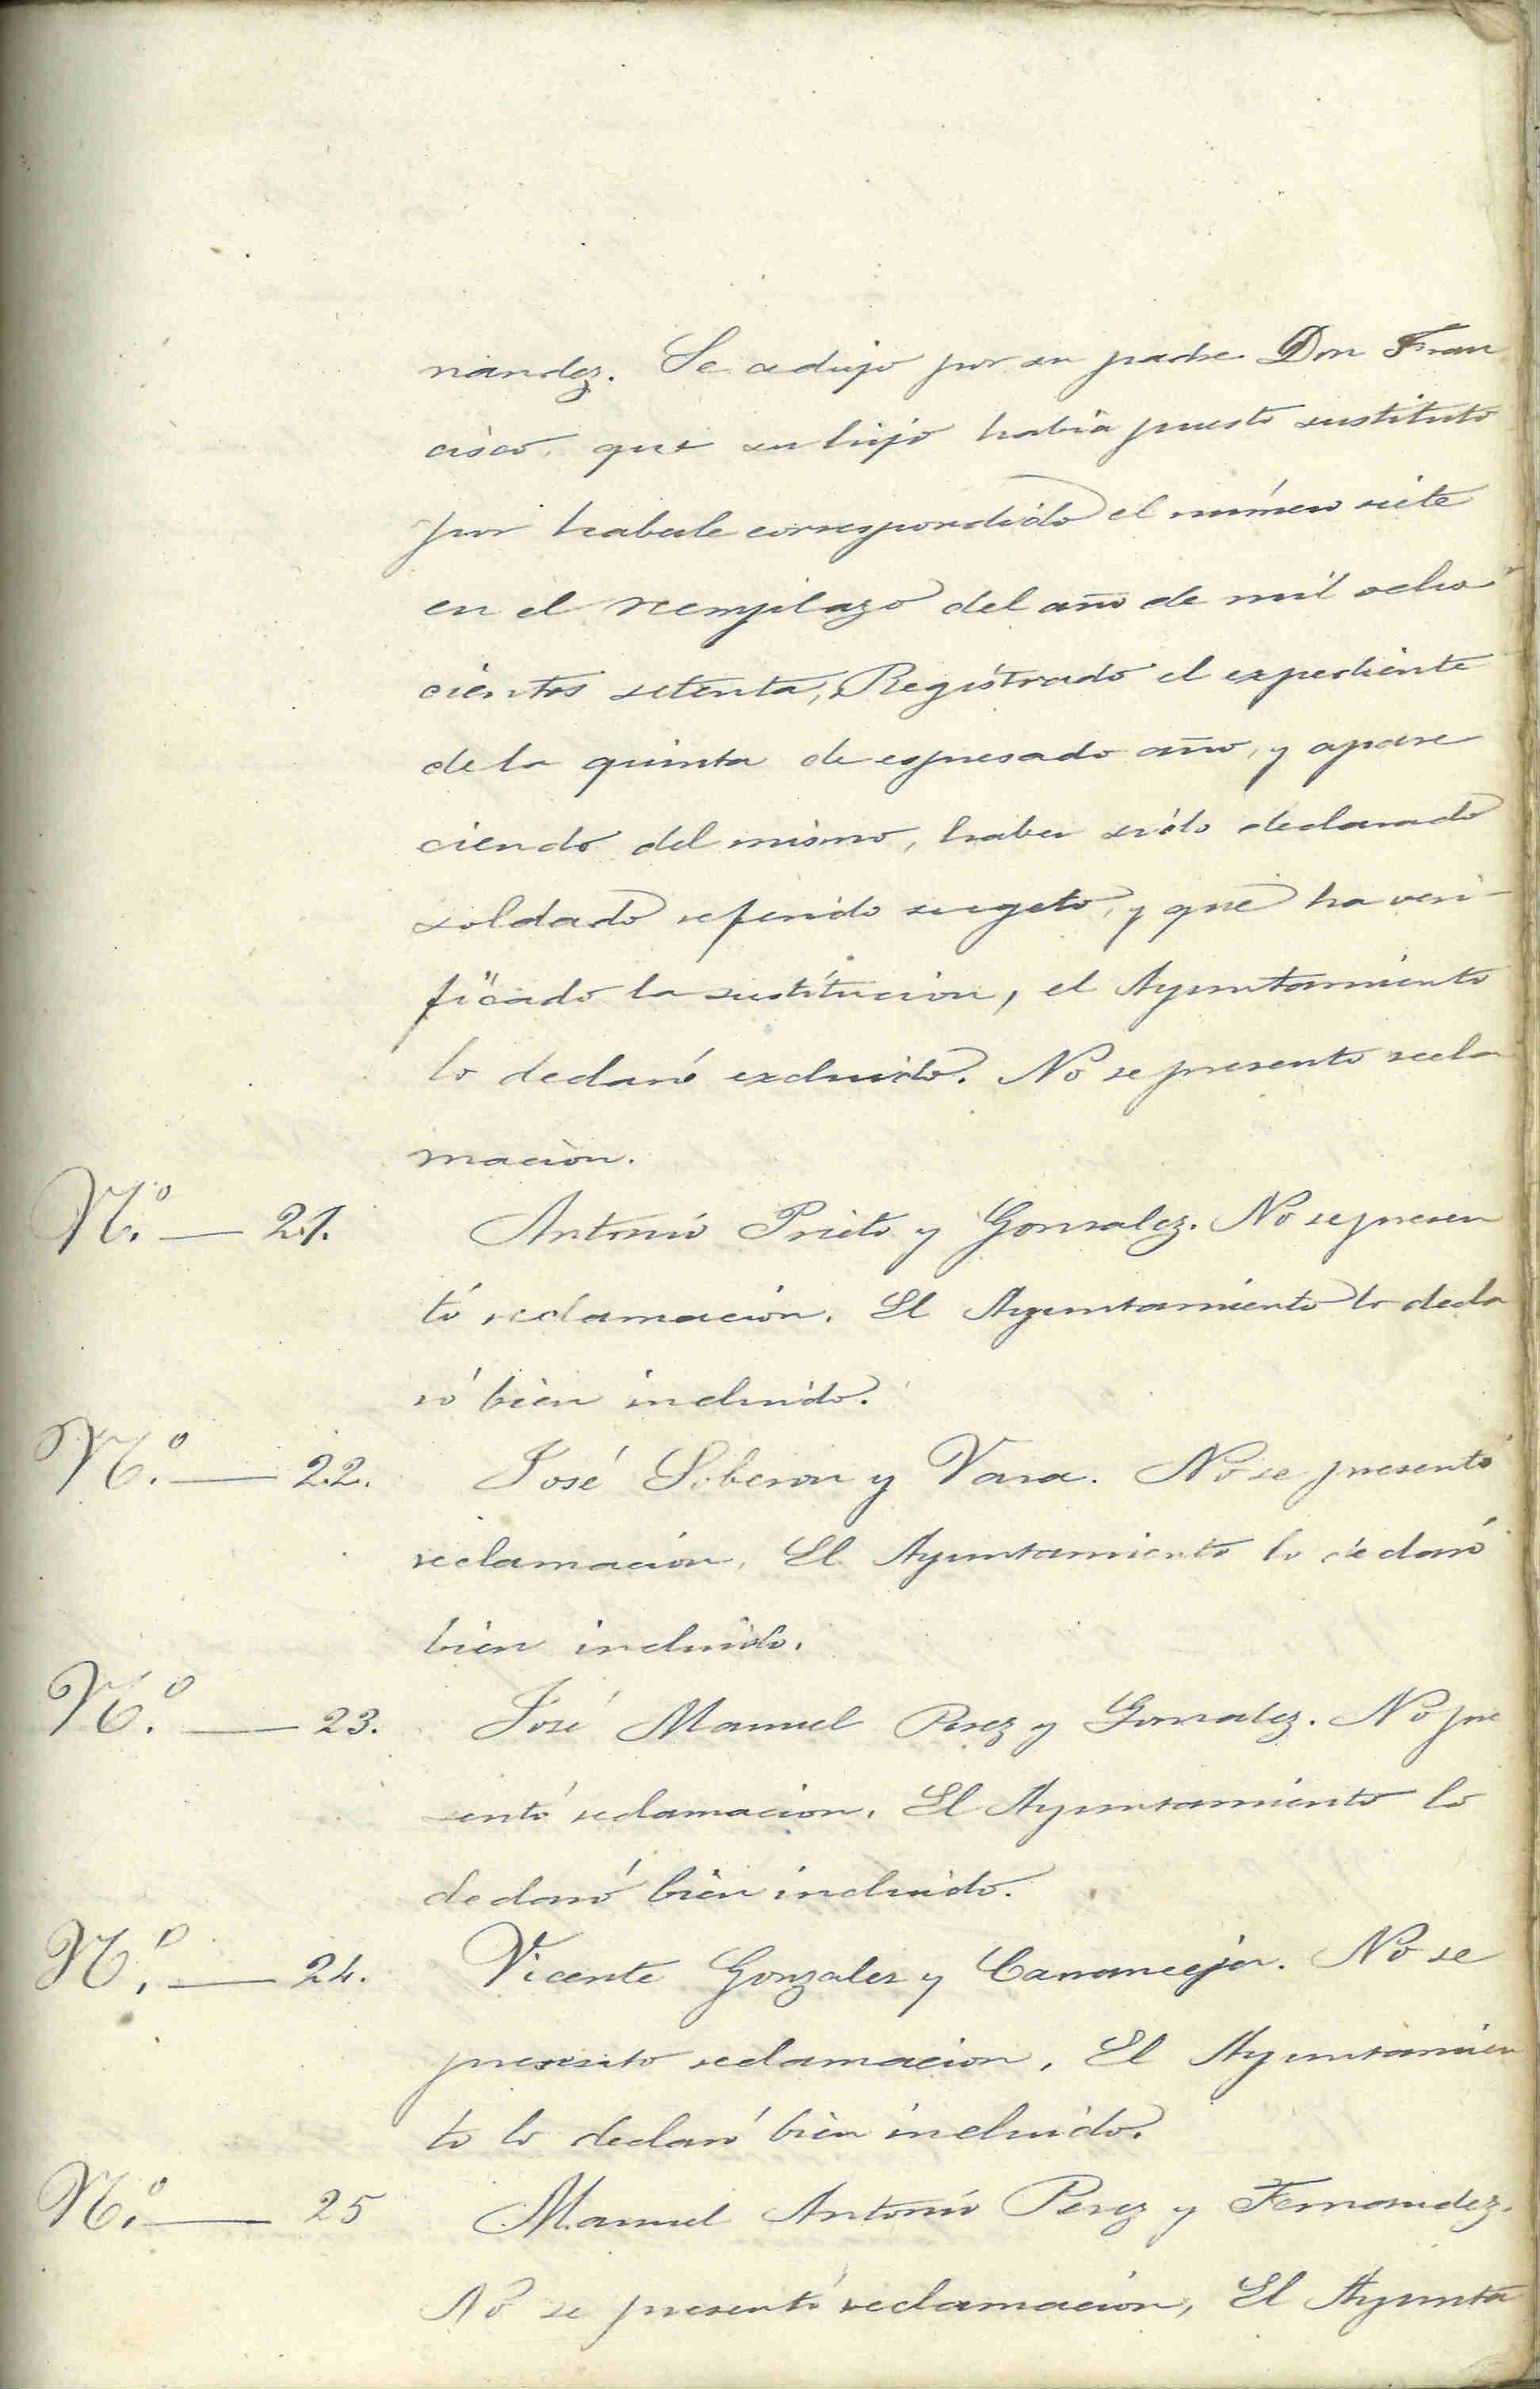 nandez. Se adujo por su padre Don Fran
cisco, que su hijo habia puesto sustituto
por haberle correspondido el número siete
en el reemplazo del año de mil ocho
cientos setenta, Registrado el expediente
de la quinta de espresado año, y apare
ciendo del mismo, haber sido declarado
soldado referido sugeto, y que ha veri-
ficado la sustitucion, el Ayuntamiento
lo declaró excluido. No se presento recla
macion.
N.º — 21. Antonio Prieto y Gonzalez. No se presen
tó reclamacion. El Ayuntamiento lo decla
ró bien incluido.
N.º — 22. José Soberon y Vara. No se presentó
reclamacion. El Ayuntamiento lo declaró
bien incluido.
N.º — 23. José Manuel Perez y Gonzalez. No pre
sentó reclamacion. El Ayuntamiento lo
declaró bien incluido.
N.º — 24. Vicente Gonzalez y. No se
presento reclamacion. El Ayuntamien
to lo declaró bien incluido.
N.º — 25 Manuel Antonio Perez y Fernandez.
No se presentó reclamacion, El Ayunta